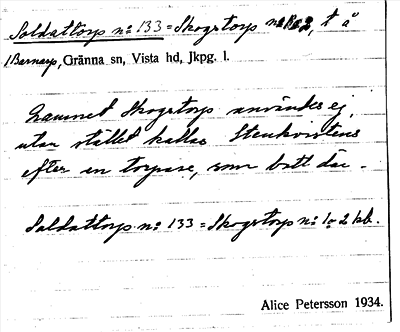 Soldattorp no 133 = Skogstorp no 1 o 2, t å
Barnarp, Gränna sn, Vista hd, Jkpg. l.
Namnet Skogstorp användes ej
utan stället kallas Stenkvistens
efter en torpare, som bott där.
Soldattorp no 133 = Skogstorp no 1 o 2 kb.
Alice Petersson 1934.